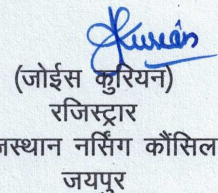 Kurian
(जोईस कुरियन)
रजिस्ट्रार
जस्थान नर्सिंग कौंसिल
जयपुर